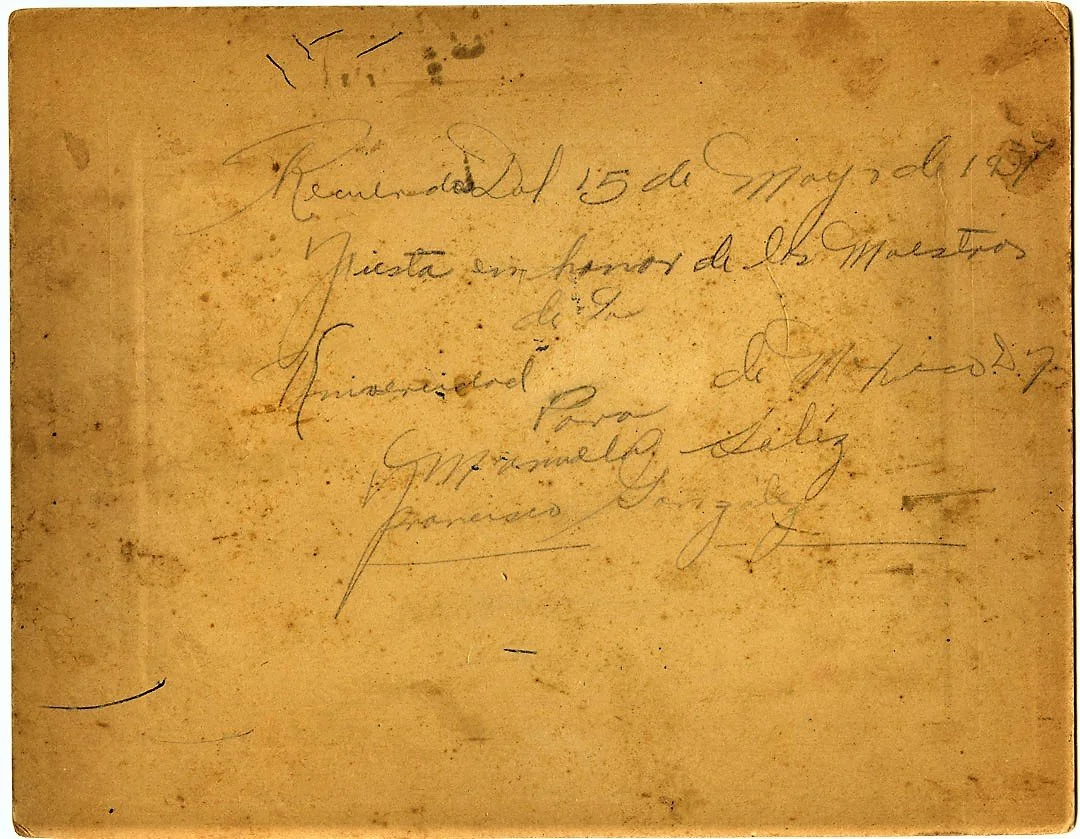 Recuerdo Del 15 de Mayo de 1937
Fiesta en honor de los Maestros
de la
Universidad de Mexico D.F.
Para
Manuela
Francisco González